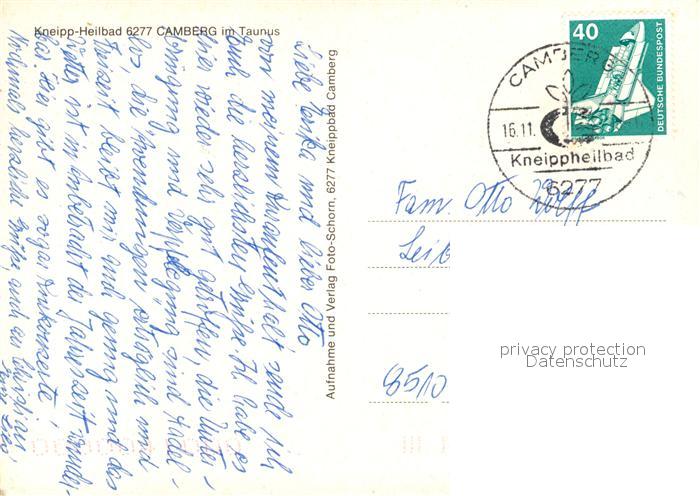 Kneipp-Heilbad 6277 CAMBERG im Taunus
Liebe und lieber Otto
von meinem Kuraufenthalt sende ich
Euch die herzlichsten Grüße. Ich habe es
hier wieder sehr gut getroffen, die Unter-
bringung und Verpflegung sind tadel-
los die Anwendungen erträglich und
Freizeit bleibt mir auch genug und das
Wetter ist in Anbetracht der Jahreszeit wunder-
bar. Hier gibt es sogar Kurkonzerte!
Nochmals herzliche Grüße auch an Christian
Aufnahme und Verlag Foto-Schorn, 6277 Kneippbad Camberg
40
DEUTSCHE BUNDESPOST
CAMBERG
16.11.
Kneippheilbad
6277
Fam. Otto Wolff
8510
privacy protection
Datenschutz